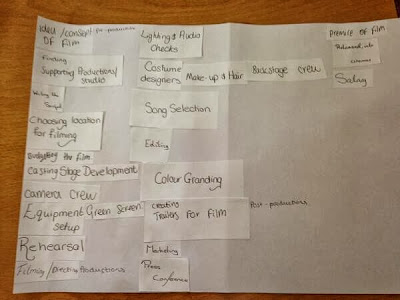 Idea / concept
OF Film
Pre-production
Finding
Supporting Productions/
studio
Writing the
Script
Choosing location
for filming
Budgeting the Film
Casting Stage Development
Camera Crew
Equipment Green Screen
setup
Rehearsal
Filming / Directing Productions
Lighting & Audio
Checks
Costume
designers Make-up & Hair Backstage crew
Song Selection
Editing
Colour Granding
creating
Trailers For Film
Post-productions
Marketing
Press
Conference
Premier OF Film
Released into
cinemas
Sales